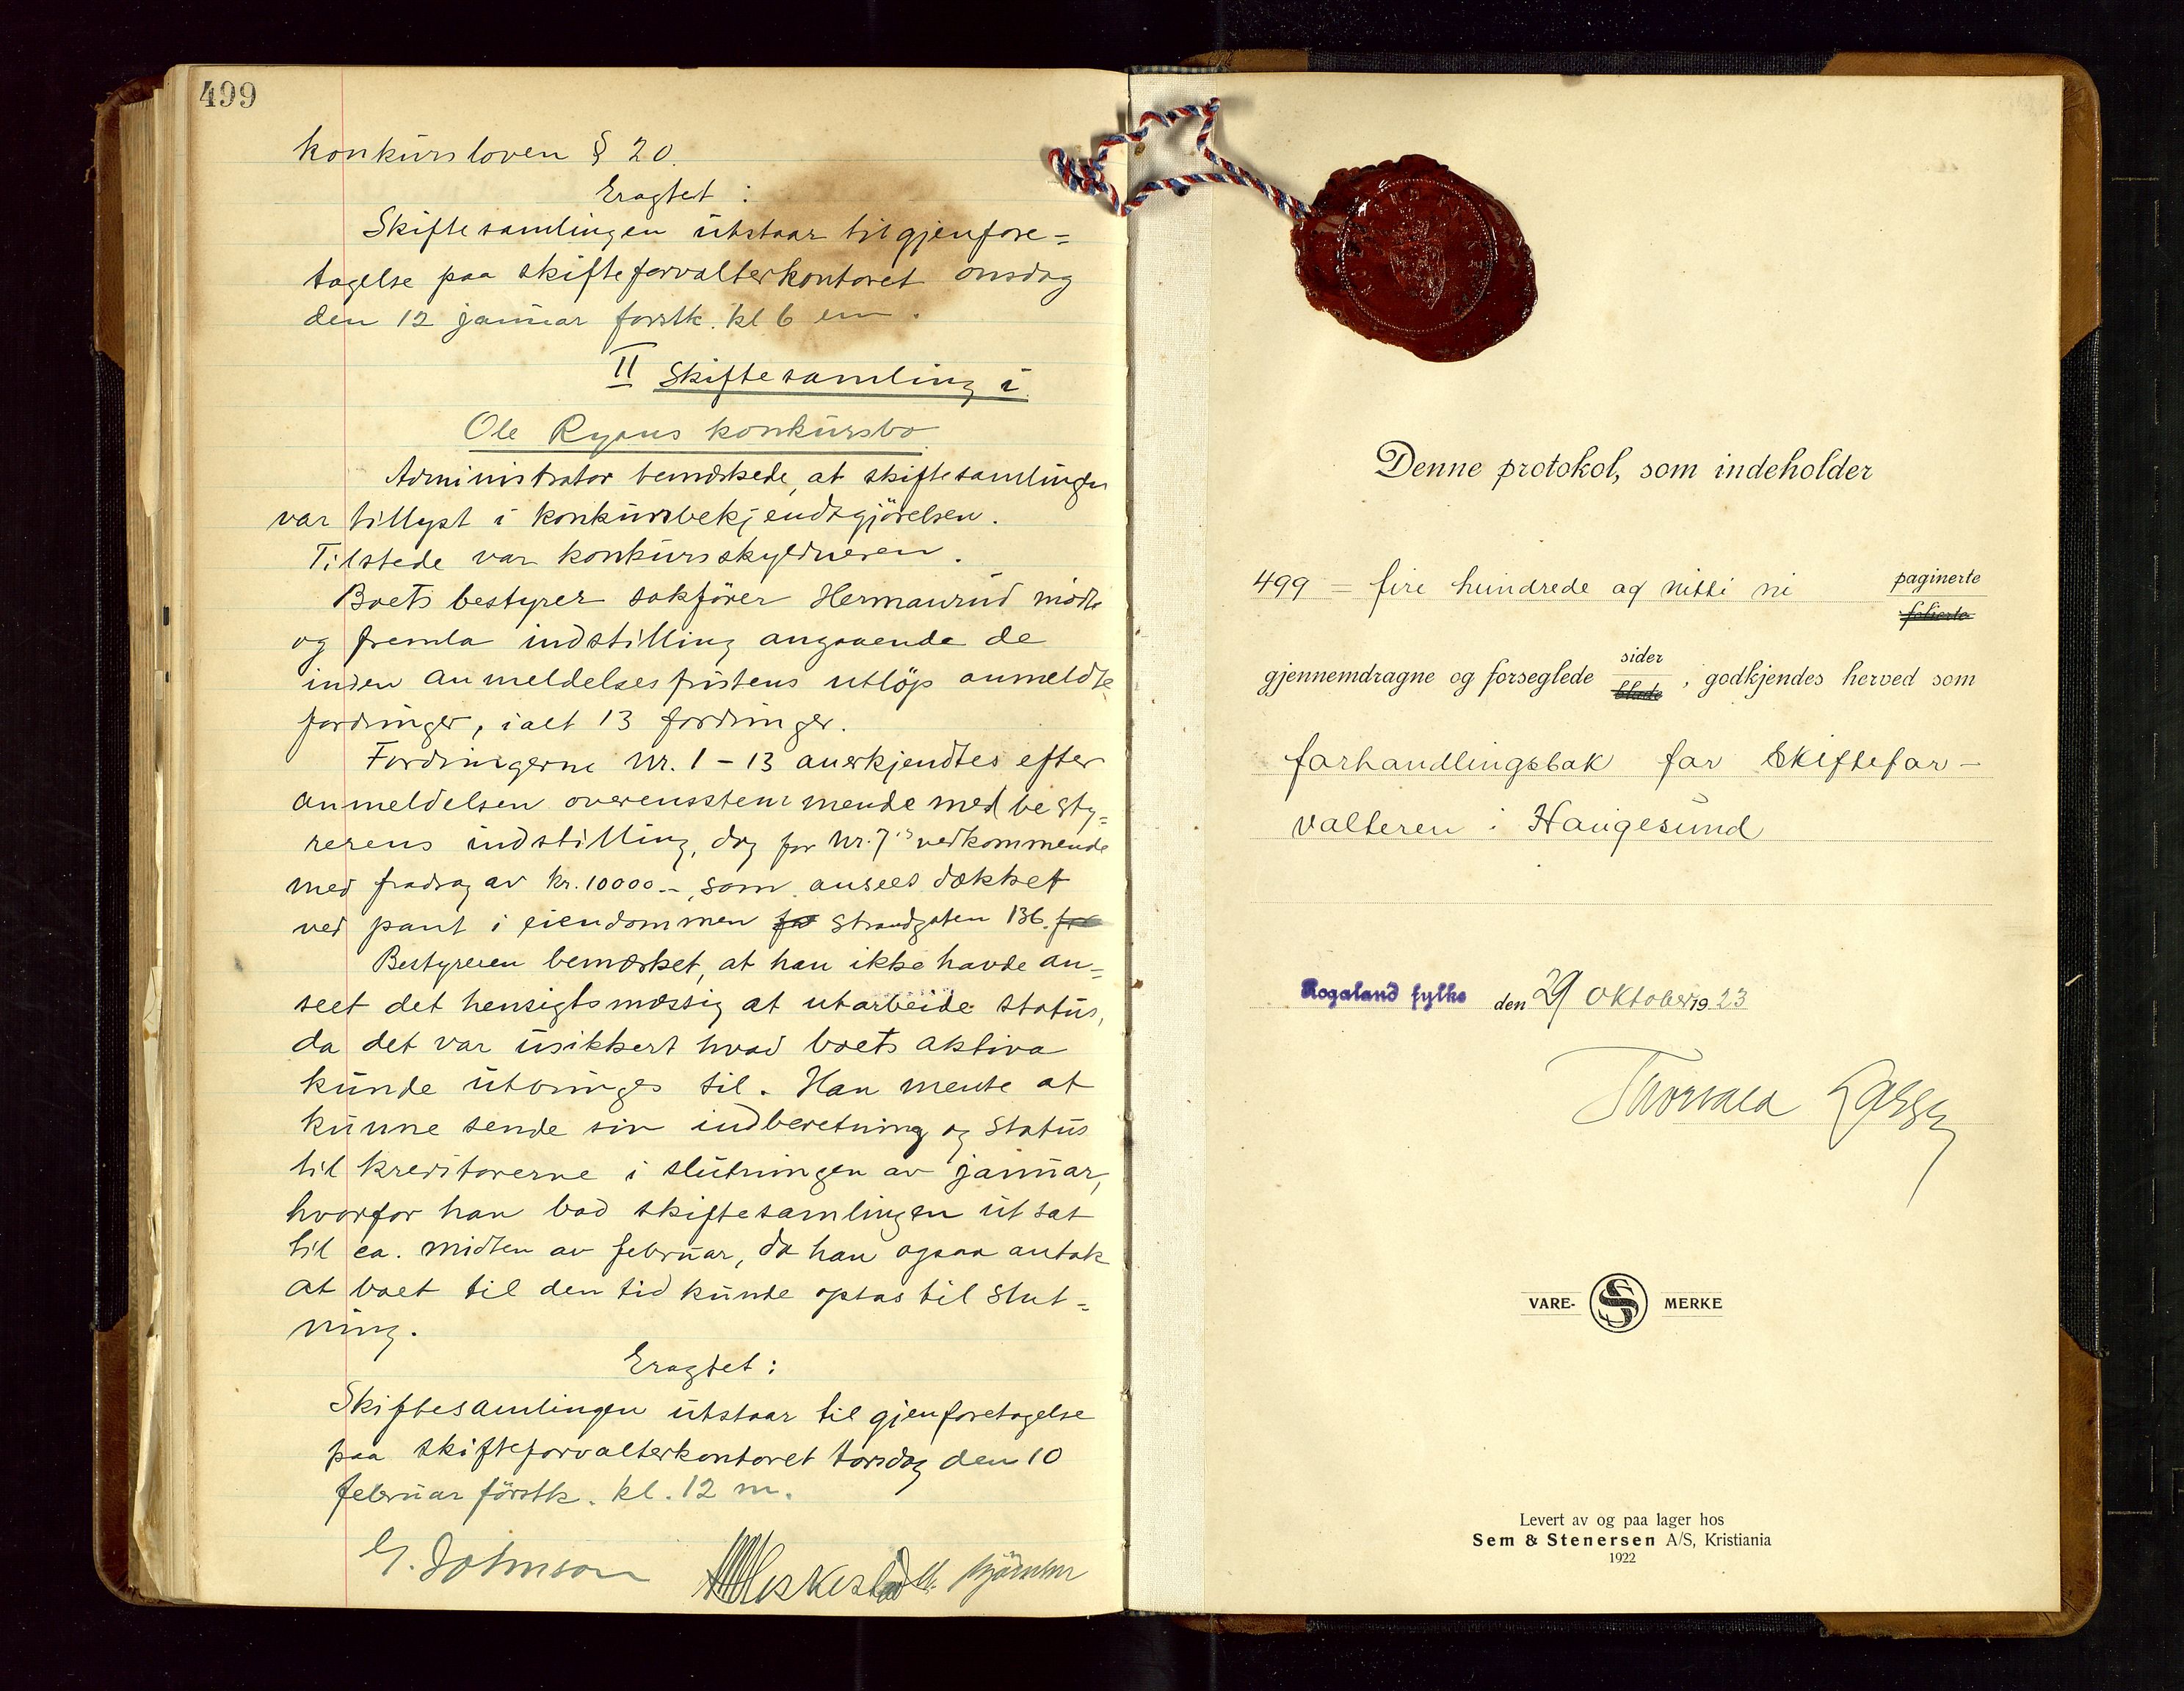 499
konkursloven § 20.
Eragtet :
Skiftesamlingen utstaar til gjenfore=
tagelse paa skifteforvalterkontoret onsdag
den 12 januar førstk. kl 6 em.
II Skiftesamling i
Ole Ryans konkursbo.
Administrator bemærkede, at skiftesamlingen
var tillyst i konkursbekjendtgjörelsen.
Tilstede var konkursskyldneren.
Boets bestyrer sakförer Hermanrud mödte
og fremla indstilling angaaende de
inden anmeldelsesfristens utlöp anmeldte
fordringer, ialt 13 fordringer.
Fordringerne nr. 1 - 13 anerkjendtes efter
anmeldelsen overensstemmende med besty=
rerens indstilling, dog for nr. 7's vedkommende
med fradrag av kr. 10000.-, som ansees dækket
ved pant i eiendommen for Strandgaten 136. for
Bestyreren bemærket, at han ikke havde an=
seet det hensigtsmæssig at utarbeide status,
da det var usikkert hvad boets aktiva
kunde utbringes til. Han mente at
kunne sende sin indberetning og status
til kreditorerne i slutningen av januar,
hvorfor han bad skiftesamlingen utsat
til ca. midten av februar, da han ogsaa antok
at boet til den tid kunde optas til slut=
ning.
Eragtet :
Skiftesamlingen utstaar til gjenforetagelse
paa skifteforvalterkontoret torsdag den 10
februar förstk. kl. 12 m.
G. Johnson
Denne protokol, som indeholder
499 = fire hundrede og nitti ni paginerte
folierte
gjennemdragne og forseglede sider
blade, godkjendes herved som
forhandlingsbok for Skiftefor-
valteren i Haugesund
Rogaland fylke den 29 oktober 1923
Thorvald
VARE- S MERKE
Levert av og paa lager hos
Sem & Stenersen A/S, Kristiania
1922